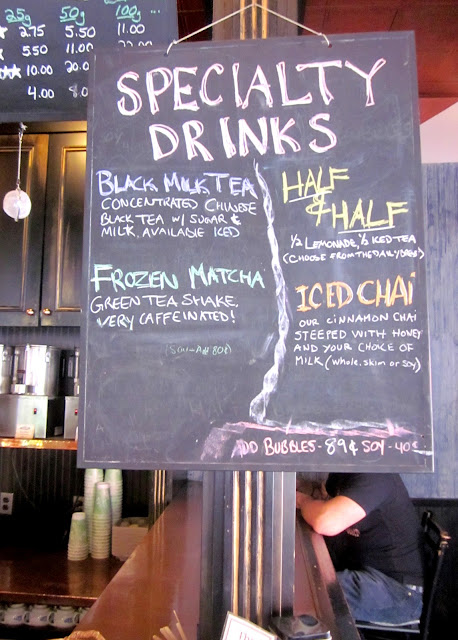 25g 50g 100g ...
2.75 5.50 11.00
5.50 11.00
10.00 20.0
4.00 8.0
SPECIALTY
DRINKS
BLACK MILK TEA
CONCENTRATED CHINESE
BLACK TEA W/ SUGAR &
MILK, AVAILABLE ICED
FROZEN MATCHA
GREEN TEA SHAKE.
VERY CAFFEINATED!
HALF
& HALF
1/2 LEMONADE, 1/2 ICED TEA
(CHOOSE FROM THE DAILY BREW)
ICED CHAI
OUR CINNAMON CHAI
STEEPED WITH HONEY
AND YOUR CHOICE OF
MILK (whole, skim or soy)
DD BUBBLES - 89¢ SOY - 40¢